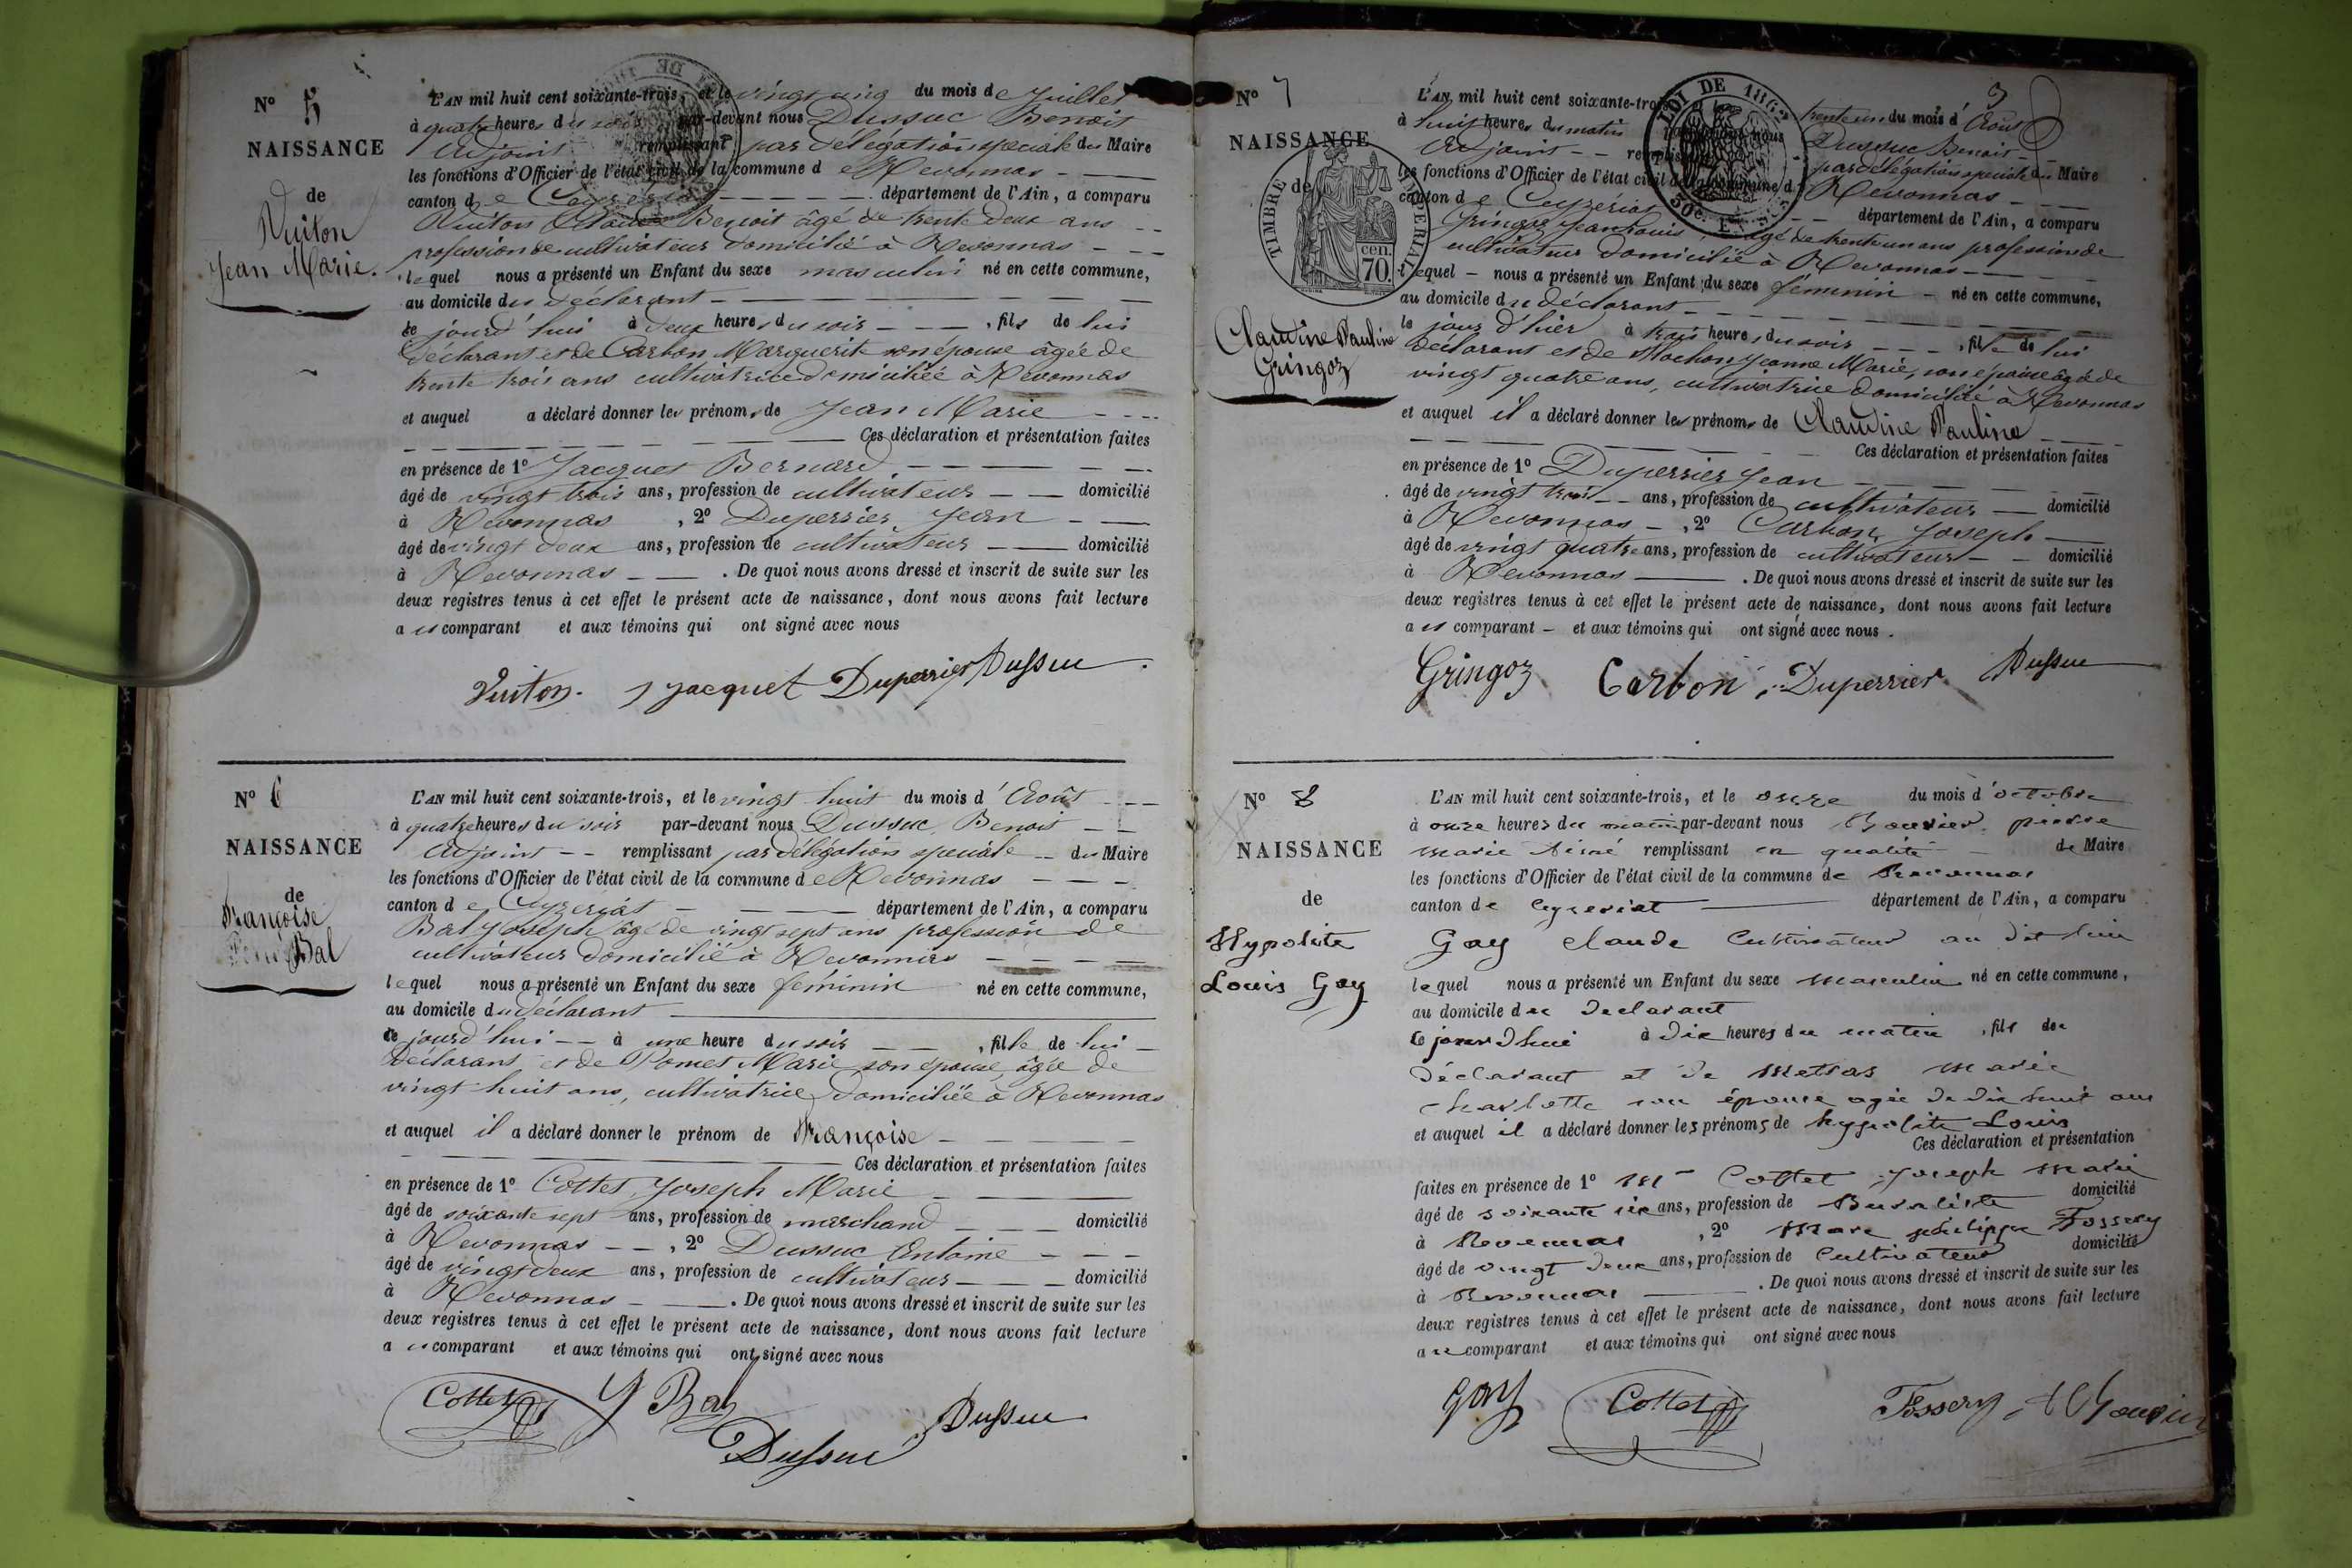 N° 5
NAISSANCE
de
Vuiton
Jean Marie.
L'AN mil huit cent soixante-trois, et le vingt cinq du mois de Juillet
à quatre heures du soir par-devant nous Dussuc Benoit
Adjoint remplissant par délégation spéciale du Maire
les fonctions d'Officier de l'état civil de la commune de Revonnas
canton de Ceyzériat département de l'Ain, a comparu
Vuiton Claude Benoit âgé de trente deux ans
profession de cultivateur domicilié à Revonnas
lequel nous a présenté un Enfant du sexe masculin né en cette commune,
au domicile du déclarant
ce jourd'hui à deux heures du soir, fils de lui
déclarant et de Carbon Marguerite son épouse âgée de
trente trois ans cultivatrice domiciliée à Revonnas
et auquel a déclaré donner les prénoms de Jean Marie
Ces déclaration et présentation faites
en présence de 1° Jacquet Bernard
âgé de vingt trois ans, profession de cultivateur domicilié
à Revonnas, 2° Duperrier Jean
âgé de vingt deux ans, profession de cultivateur domicilié
à Revonnas. De quoi nous avons dressé et inscrit de suite sur les
deux registres tenus à cet effet le présent acte de naissance, dont nous avons fait lecture
au comparant et aux témoins qui ont signé avec nous
Vuiton. J Jacquet Duperrier Dussuc
N° 6
NAISSANCE
de
Françoise
Bal
L'AN mil huit cent soixante-trois, et le vingt huit du mois d'Août
à quatre heures du soir par-devant nous Dussuc Benoit
Adjoint remplissant par délégation spéciale du Maire
les fonctions d'Officier de l'état civil de la commune de Revonnas
canton de Ceyzeriat département de l'Ain, a comparu
Bal Joseph âgé de vingt sept ans profession de
cultivateur domicilié à Revonnas
lequel nous a présenté un Enfant du sexe féminin né en cette commune,
au domicile du déclarant
ce jourd'hui à une heure du soir, fille de lui
déclarant et de Pomet Marie son épouse, âgée de
vingt huit ans, cultivatrice domiciliée à Revonnas
et auquel il a déclaré donner le prénom de Françoise
Ces déclaration et présentation faites
en présence de 1° Cottet Joseph Marie
âgé de soixante sept ans, profession de marchand domicilié
à Revonnas, 2° Dussuc Antoine
âgé de vingt deux ans, profession de cultivateur domicilié
à Revonnas. De quoi nous avons dressé et inscrit de suite sur les
deux registres tenus à cet effet le présent acte de naissance, dont nous avons fait lecture
au comparant et aux témoins qui ont signé avec nous
Cottet J Bal Dussuc
Dussuc
3
N° 7
NAISSANCE
de
TIMBRE IMPERIAL
70. cen.
LOI DE 1862
50c. EN SUS
Claudine Pauline
Gringoz
L'AN mil huit cent soixante-trois trente un du mois d'Août
à huit heures du matin nous Dussuc Benoit
Adjoint par délégation spéciale du Maire
les fonctions d'Officier de l'état civil de la commune de Revonnas
canton de Ceyzeriat département de l'Ain, a comparu
Gringoz Jean Louis, âgé de trente un ans profession de
cultivateur domicilié à Revonnas
lequel nous a présenté un Enfant du sexe féminin né en cette commune,
au domicile du déclarant
le jour d'hier à trois heures du soir, fille de lui
déclarant et de Mochon Jeanne Marie, son épouse âgée de
vingt quatre ans, cultivatrice domiciliée à Revonnas
et auquel il a déclaré donner les prénoms de Claudine Pauline
Ces déclaration et présentation faites
en présence de 1° Duperrier Jean
âgé de vingt trois ans, profession de cultivateur domicilié
à Revonnas, 2° Carbon Joseph
âgé de vingt quatre ans, profession de cultivateur domicilié
à Revonnas. De quoi nous avons dressé et inscrit de suite sur les
deux registres tenus à cet effet le présent acte de naissance, dont nous avons fait lecture
au comparant et aux témoins qui ont signé avec nous.
Gringoz Carbon Duperrier Dussuc
N° 8
NAISSANCE
de
Hypolite
Louis Gay
L'AN mil huit cent soixante-trois, et le onze du mois d'octobre
à onze heures du matin par-devant nous Bouvier pierre
marie Aimé remplissant en qualité de Maire
les fonctions d'Officier de l'état civil de la commune de Revonnas
canton de Ceyzeriat département de l'Ain, a comparu
Gay claude Cultivateur au dit lieu
lequel nous a présenté un Enfant du sexe masculin né en cette commune,
au domicile du declarant
ce jourdhui à dix heures du matin, fils du
déclarant et de Mettas marie
charlotte son épouse agée de dix huit ans
et auquel il a déclaré donner les prénoms de hypolite Louis
Ces déclaration et présentation
faites en présence de 1° Mr Cottet Joseph marie
âgé de soixante six ans, profession de Buraliste domicilié
à Revonnas, 2° Marc philippe Fossery
âgé de vingt deux ans, profession de Cultivateur domicilié
à Revonnas. De quoi nous avons dressé et inscrit de suite sur les
deux registres tenus à cet effet le présent acte de naissance, dont nous avons fait lecture
au comparant et aux témoins qui ont signé avec nous
Gay Cottet Fossery A Bouvier